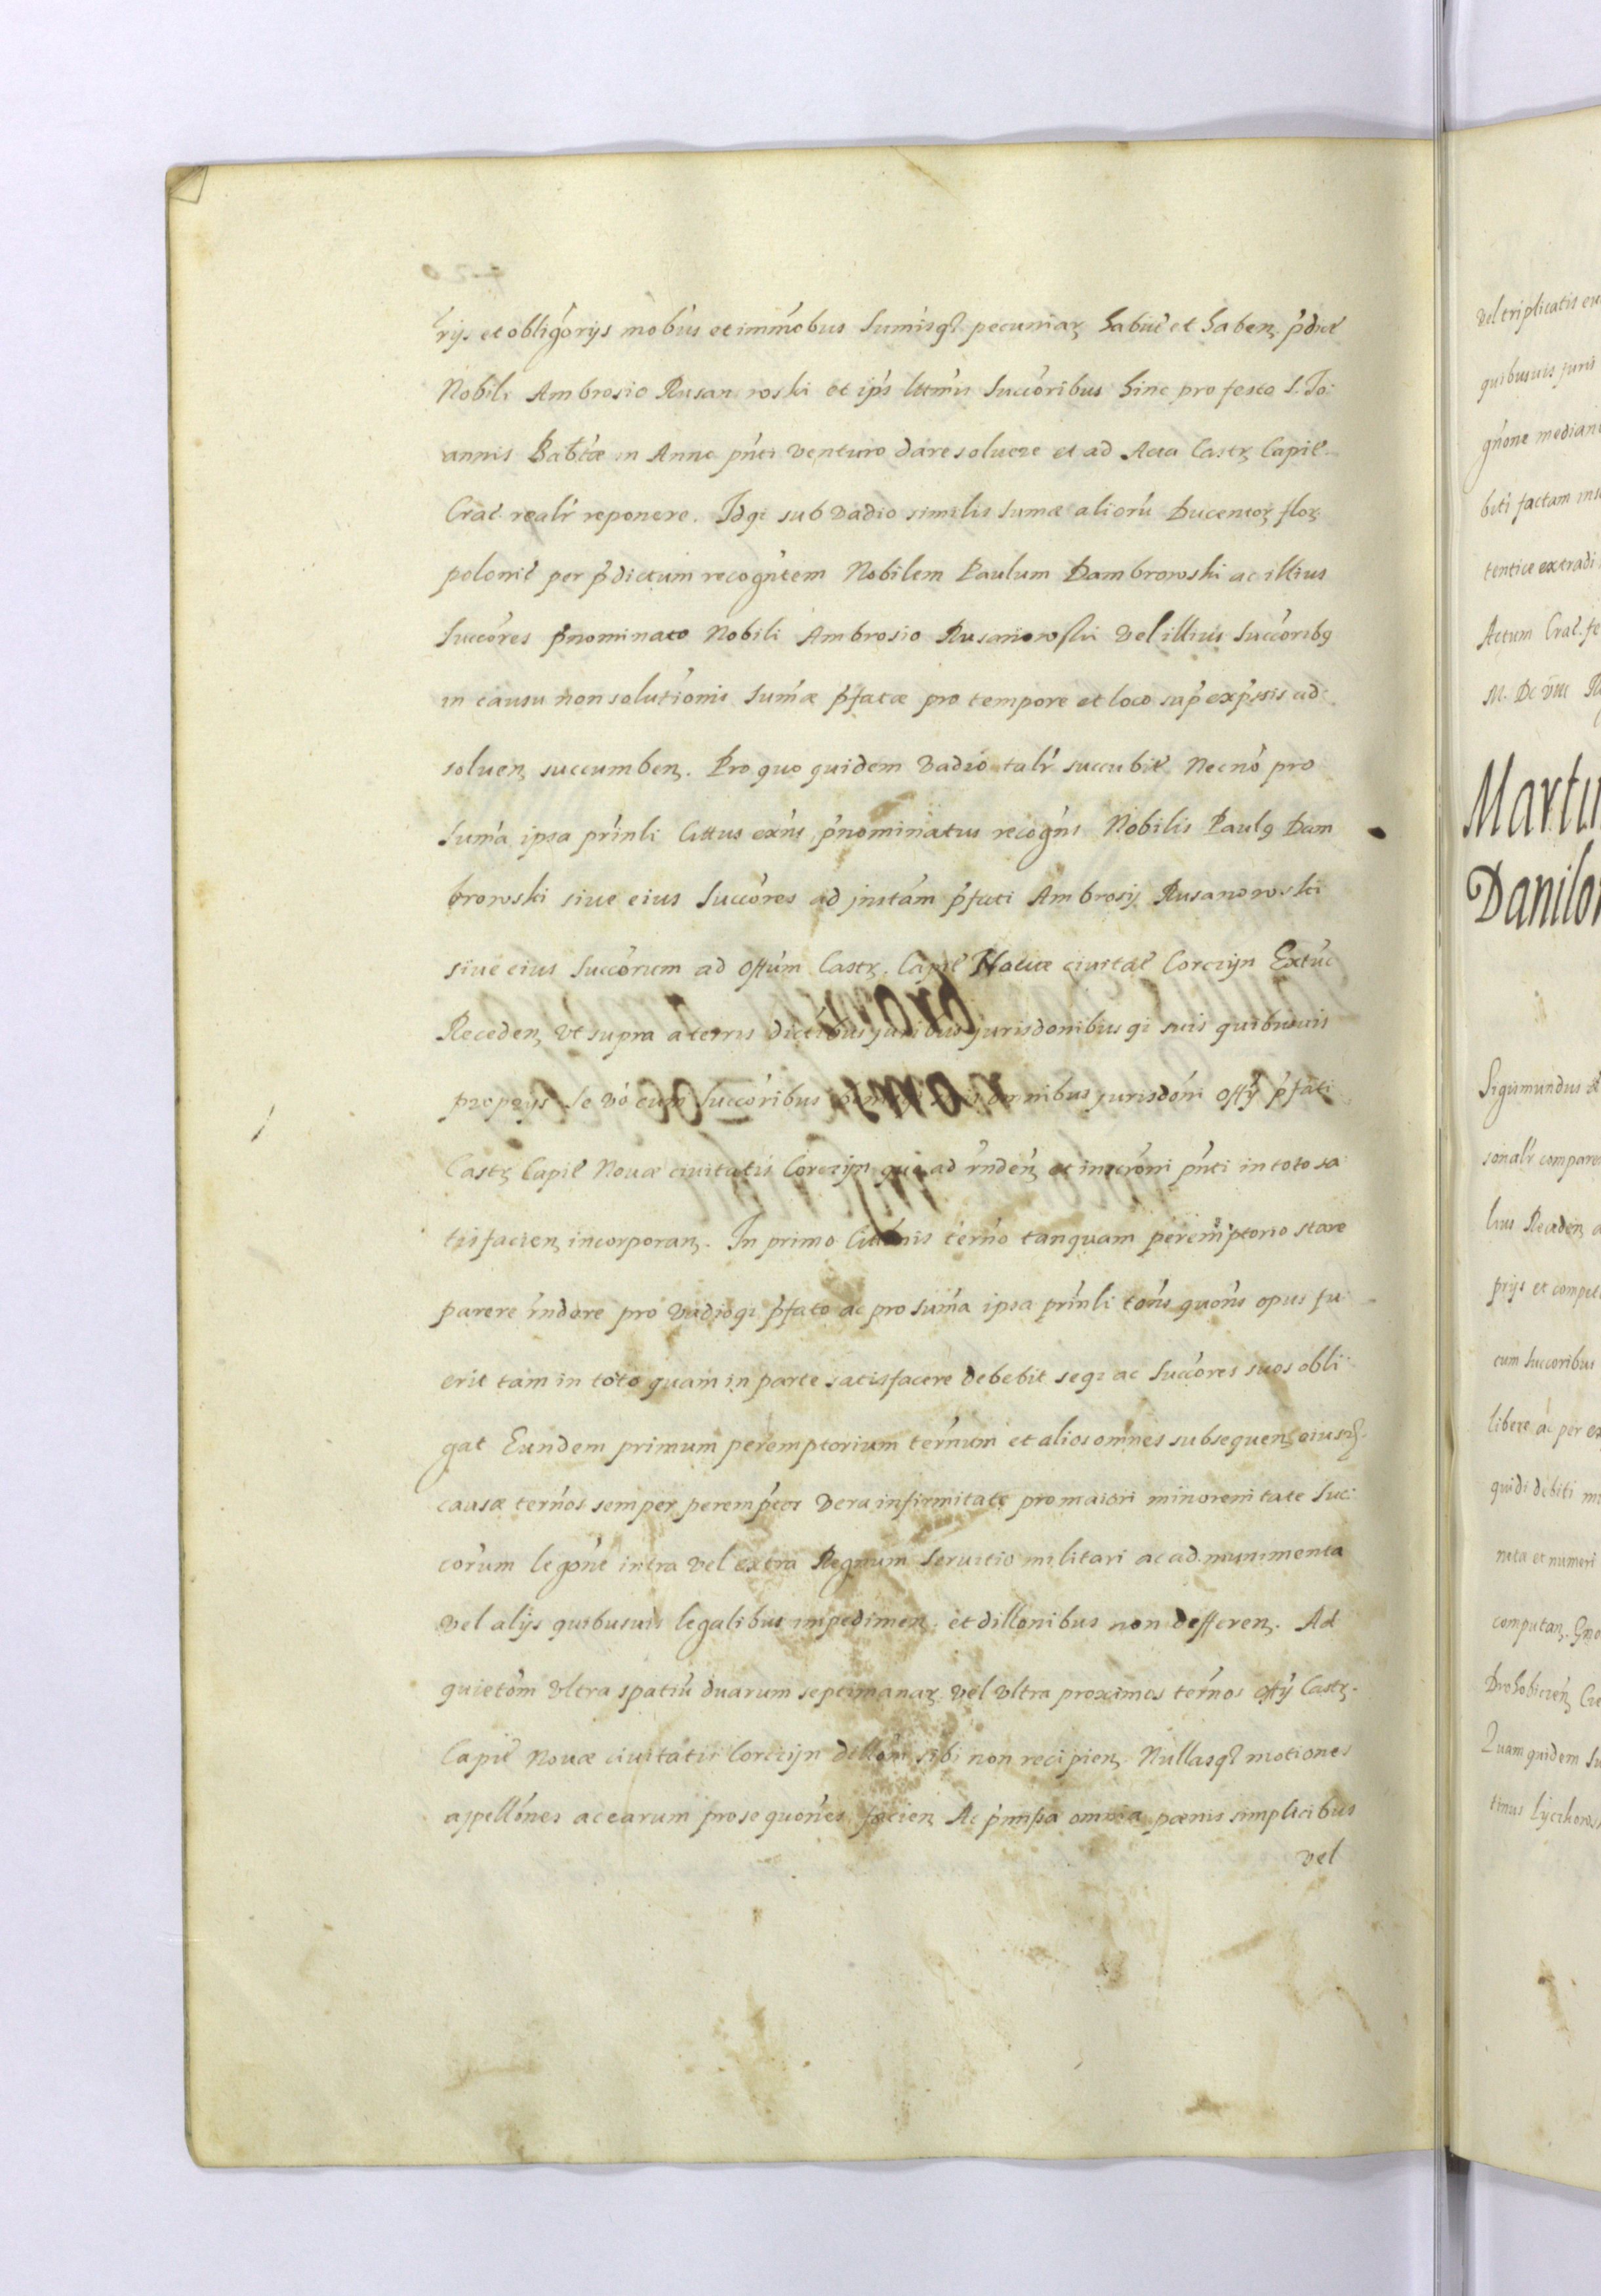 rijs et obligorijs mobus et immobus Sumisq pecuniar habit et haben pdict
Nobili Ambrosio Rusanowski et ips lttmis Succoribus hinc pro festo S. Jo:
annis Babtæ in Anno pnti venturo dare soluere et ad Acta Castr Capit
Crac. realr reponere. Idqz sub vadio similis Sumæ alioru Ducentor flor
polonic per pdictum recogntem Nobilem Paulum Dambrowski ac illius
Succores pnominato Nobili Ambrosio Rusanowski vel illius Succoribq
in causu non solutionis Sumæ pfatæ pro tempore et loco sup expssis ad
soluen succumben. Pro quo quidem vadio talr succubit Necno pro
Suma ipsa prinli Cittus exns pnominatus recogns Nobilis Paulq Dam
browski siue eius Succores ad jnstam pfati Ambrosij Rusanowski
siue eius Succorum ad Offum Castr. Capit Nouæ ciuitat Corczyn Extuc
Receden vt supra a terris juribus jurisdonibusqz suis quibusuis
proprijs Se vo cum Succoribus omnibus jurisdoni Offij pfati
Castr Capit Nouæ ciuitatis Corczyn qui ad rnden et inscroni pnti in toto sa
tisfacien incorporan. In primo Citonis terno tanquam peremptorio stare
parere rndere pro vadioqz pfato ac pro Suma ipsa prinli tons quons opus fu
erit tam in toto quam in parte satisfacere debebit seqz ac Succores suos obli
gat Eundem primum peremptorium ternum et alios omnes subsequen eiusd
causæ ternos semper peremptor vera infirmitate pro maiori minorennitate Suc
corum legone intra vel extra Regnum Seruitio militari ac ad munimenta
vel alijs quibusuis legalibus impedimen et dillonibus non defferen. Ad
quietom vltra spatiu duarum septimanar vel vltra proximos ternos offij Castr.
Capit Nouæ ciuitatis Corczyn dillom sibi non recipien Nullasq motiones
appellones ac earum prosequones facien Ac pmissa omnia pænis simplicibus
vel
vel triplicatis
quibusuis juris
gnone
factam
extradi
Actum Crac.
M. DC viii
Sigismundus
sonalr
lius Receden
prijs et
cum Succoribus
libere ac per
debiti
et numeri
computan.
Quam quidem
tinus